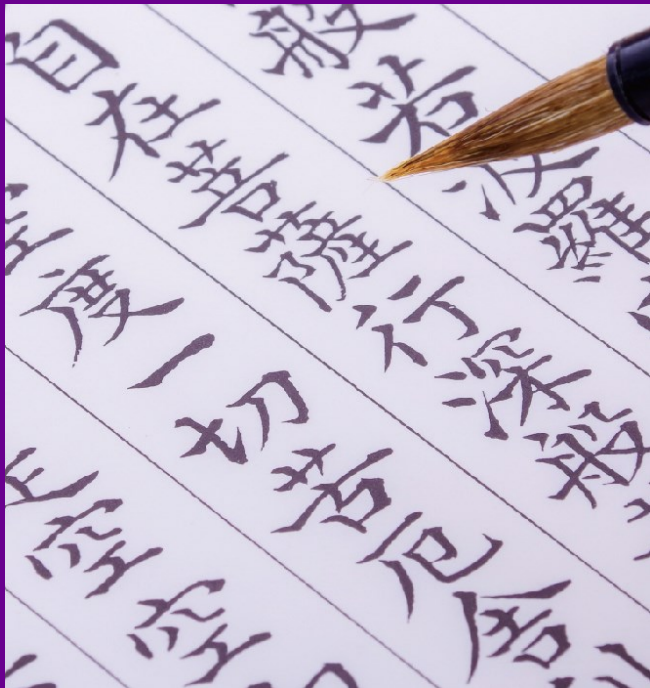 般若波羅
自在菩薩行深般
空度一切苦厄舍
是空空